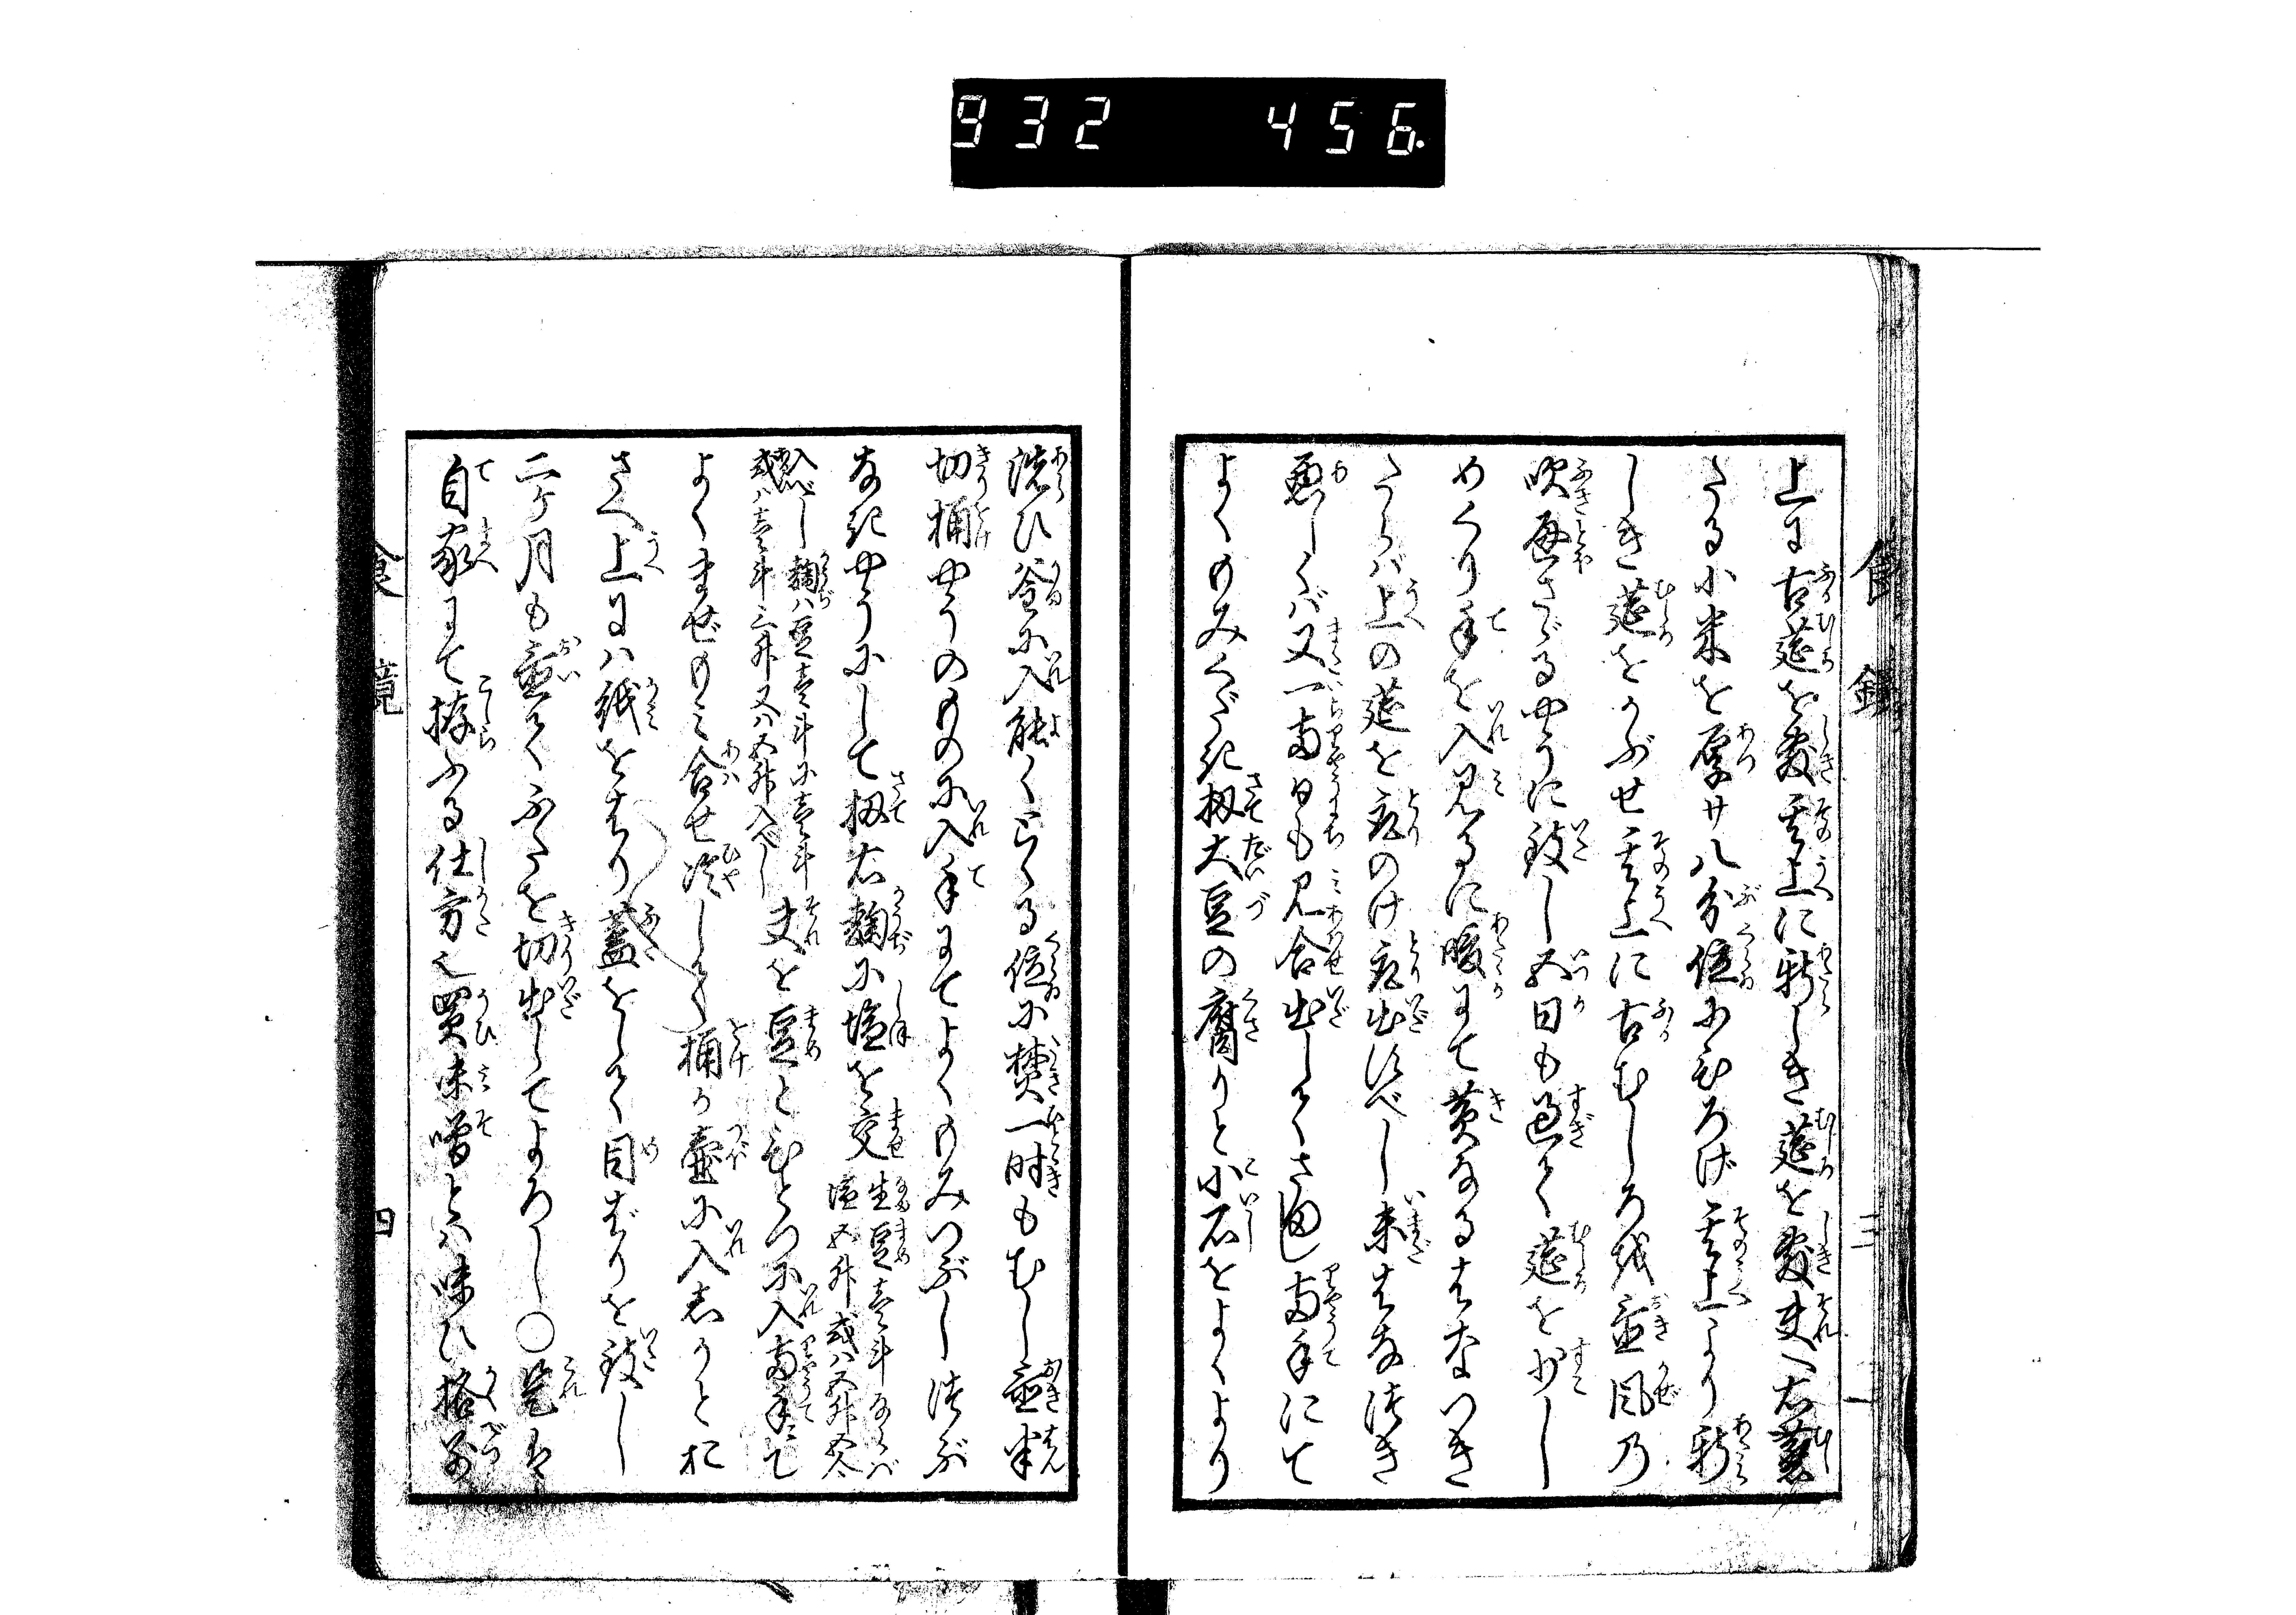 932 456.
上に古莚を敷其上に新しき莚を敷夫へ右蒸
たる小米を厚サ八分位にひろげ其上より新
しき莚をかぶせ其上に古むしろ抔置風の
吹通さゞるやうに致し五日も過て莚を少し
めくり手を入見るに暖にて黄なるはなつき
たらバ上の莚を取のけ取出すべし未はな付き
悪しくバ又一両日も見合出してさまし両手にて
よくもみくだき扨大豆の腐りと小石をよくより
洗ひ釜に入能くにへる位に焚一時もむし置半
切桶やうのものに入手にてよくもみつぶし つぶ
なきやうにして扨右麹に塩を交
生豆壱斗ならバ
塩五升或ハ五升五合
入べし麹ハ豆壱斗に壱斗
或ハ壱斗二升又ハ五升入べし
夫を豆とひとつに入両手にて
よくまぜもみ合せ冷して桶か壷に入しかとお
さへ上にハ紙をはり蓋をして目ばりを致し
二ケ月も置てふたを切出してよろし○是は
自家にて拵ふる仕方也買味噌とハ味ひ格別
食 鏡
三
四